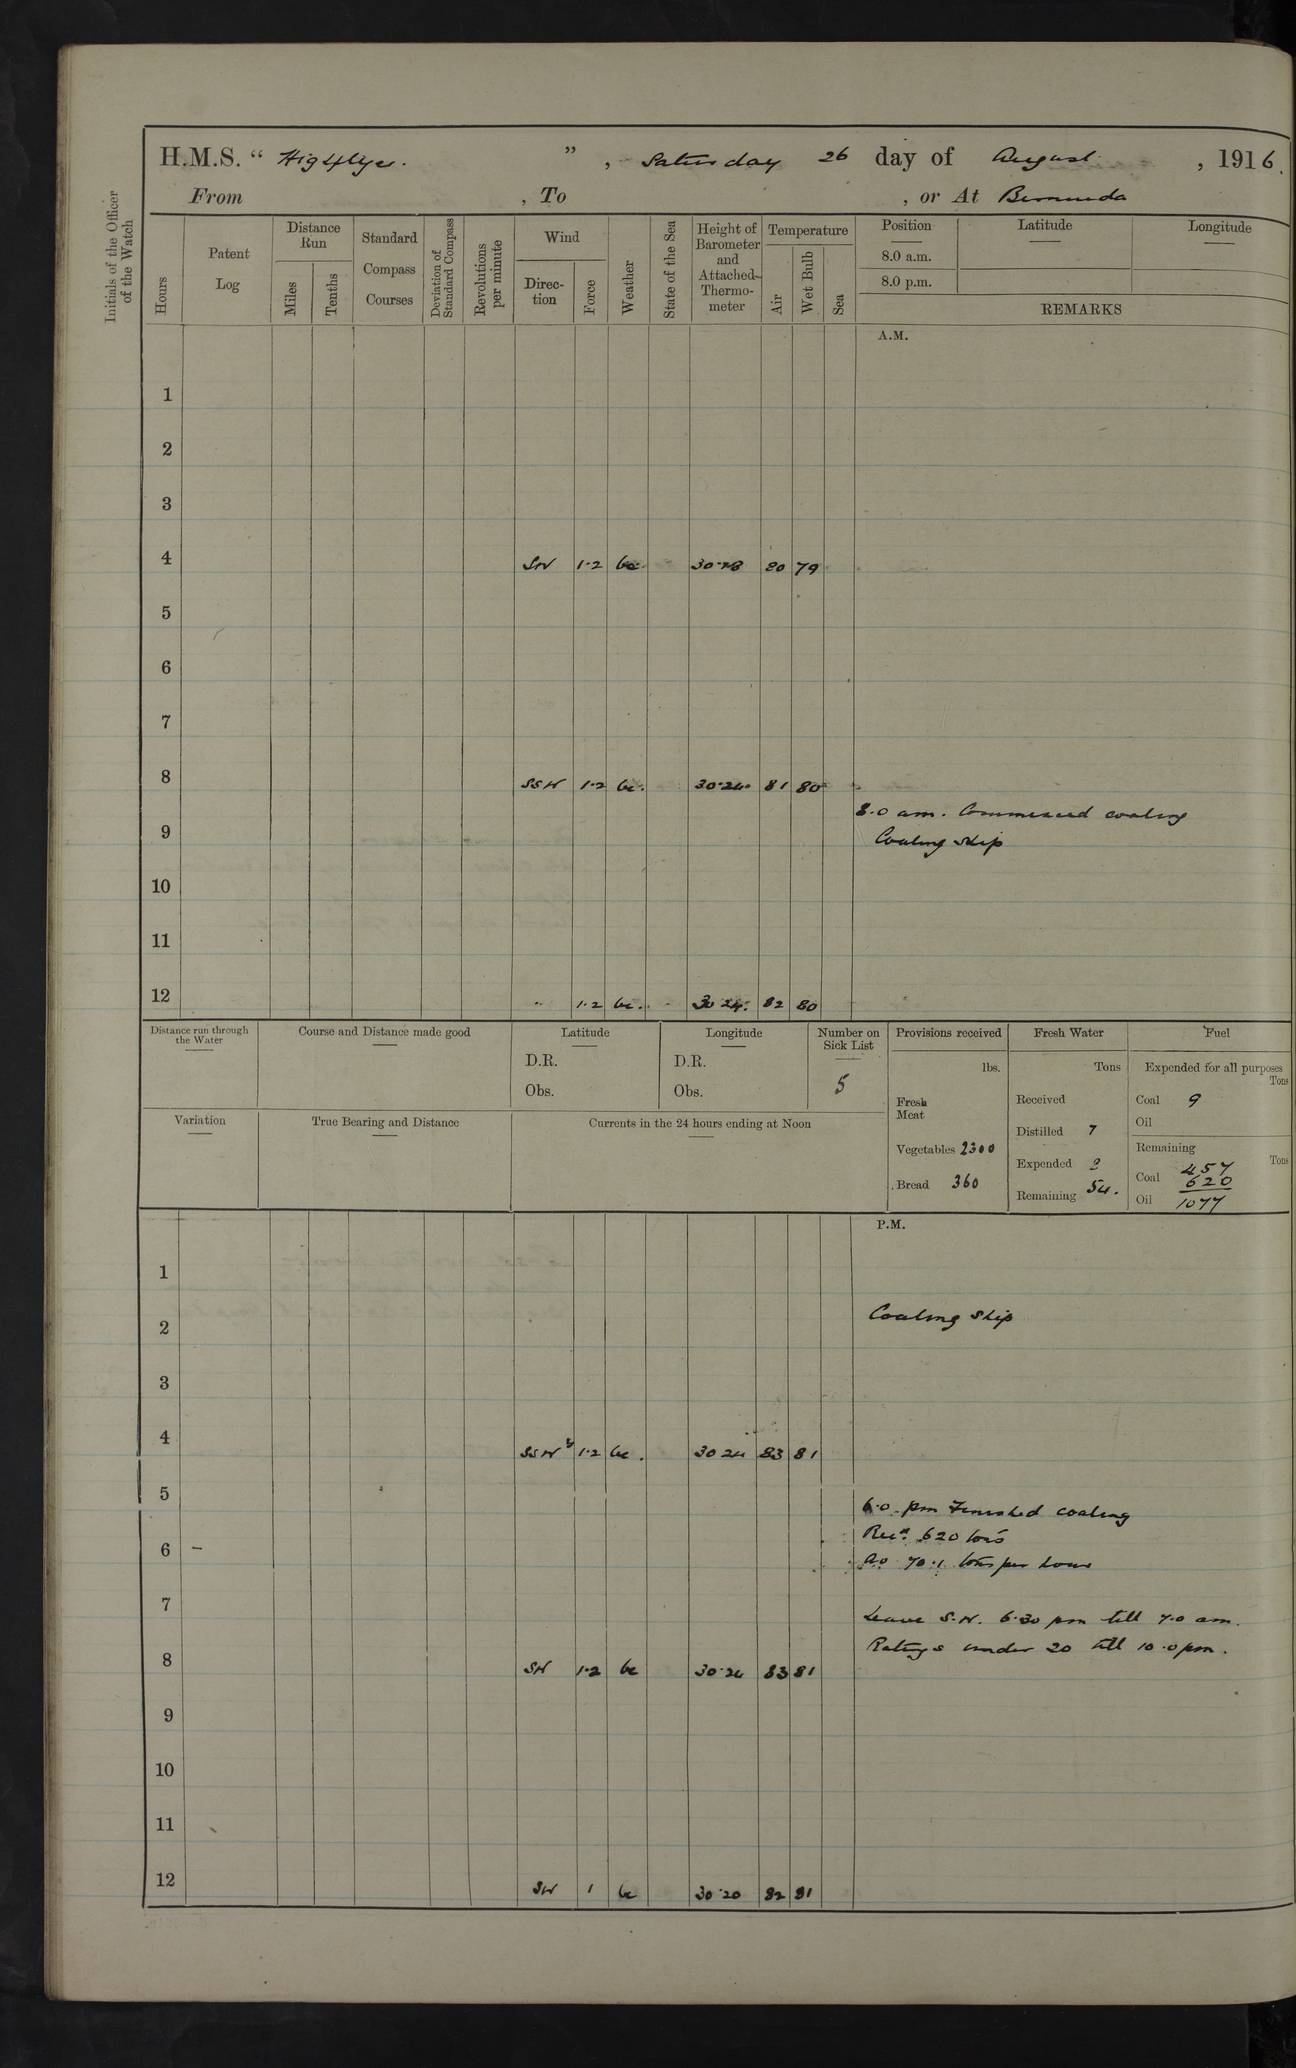 H.M.S. “ Highflyer. ” , Saturday 26 day of August , 1916.
From , To , or At Bermuda
Initials of the Officer of the Watch
Hours
Patent Log
Distance Run
Miles
Tenths
Standard Compass Courses
Deviation of Standard Compass
Revolutions per minute
Wind
Direc- tion
Force
Weather
State of the Sea
Height of Barometer and Attached Thermo- meter
Temperature
Air
Wet Bulb
Sea
Position Latitude Longitude
8.0 a.m.
8.0 p.m.
REMARKS
A.M.
1
2
3
4 SW 1·2 bc 80 79
5
6
7
8 SSW 1·2 bc. 30·24 81 80
8.0 am. Commenced coaling
9
Coaling Ship
10
11
12 " 1·2 bc. 30 24. 82 80
Distance run through the Water
Course and Distance made good
Latitude
D.R.
Obs.
Longitude
D.R.
Obs.
Number on Sick List
5
Provisions received
lbs.
Fresh Meat
Vegetables 2300
Bread 360
Fresh Water
Tons
Received
Distilled 7
Expended
Remaining 54.
Fuel
Expended for all purposes
Tons
Coal 9
Oil
Remaining
Tons
Coal 457
620
Oil 1077
Variation
True Bearing and Distance
Currents in the 24 hours ending at Noon
P.M.
1
2 Coaling Ship
3
4 SSW 1·2 bc. 30 24 83 81
5
6.0 pm Finished coaling
6 Recd. 620 tons
Av 70.1 tons per hour
7
Leave S.W. 6.30 pm till 7.0 am.
Ratings under 20 till 10.0 pm.
8 SW 1·2 bc 30·24 83 81
9
10
11
12 SW 1 bc 30·20 82 81